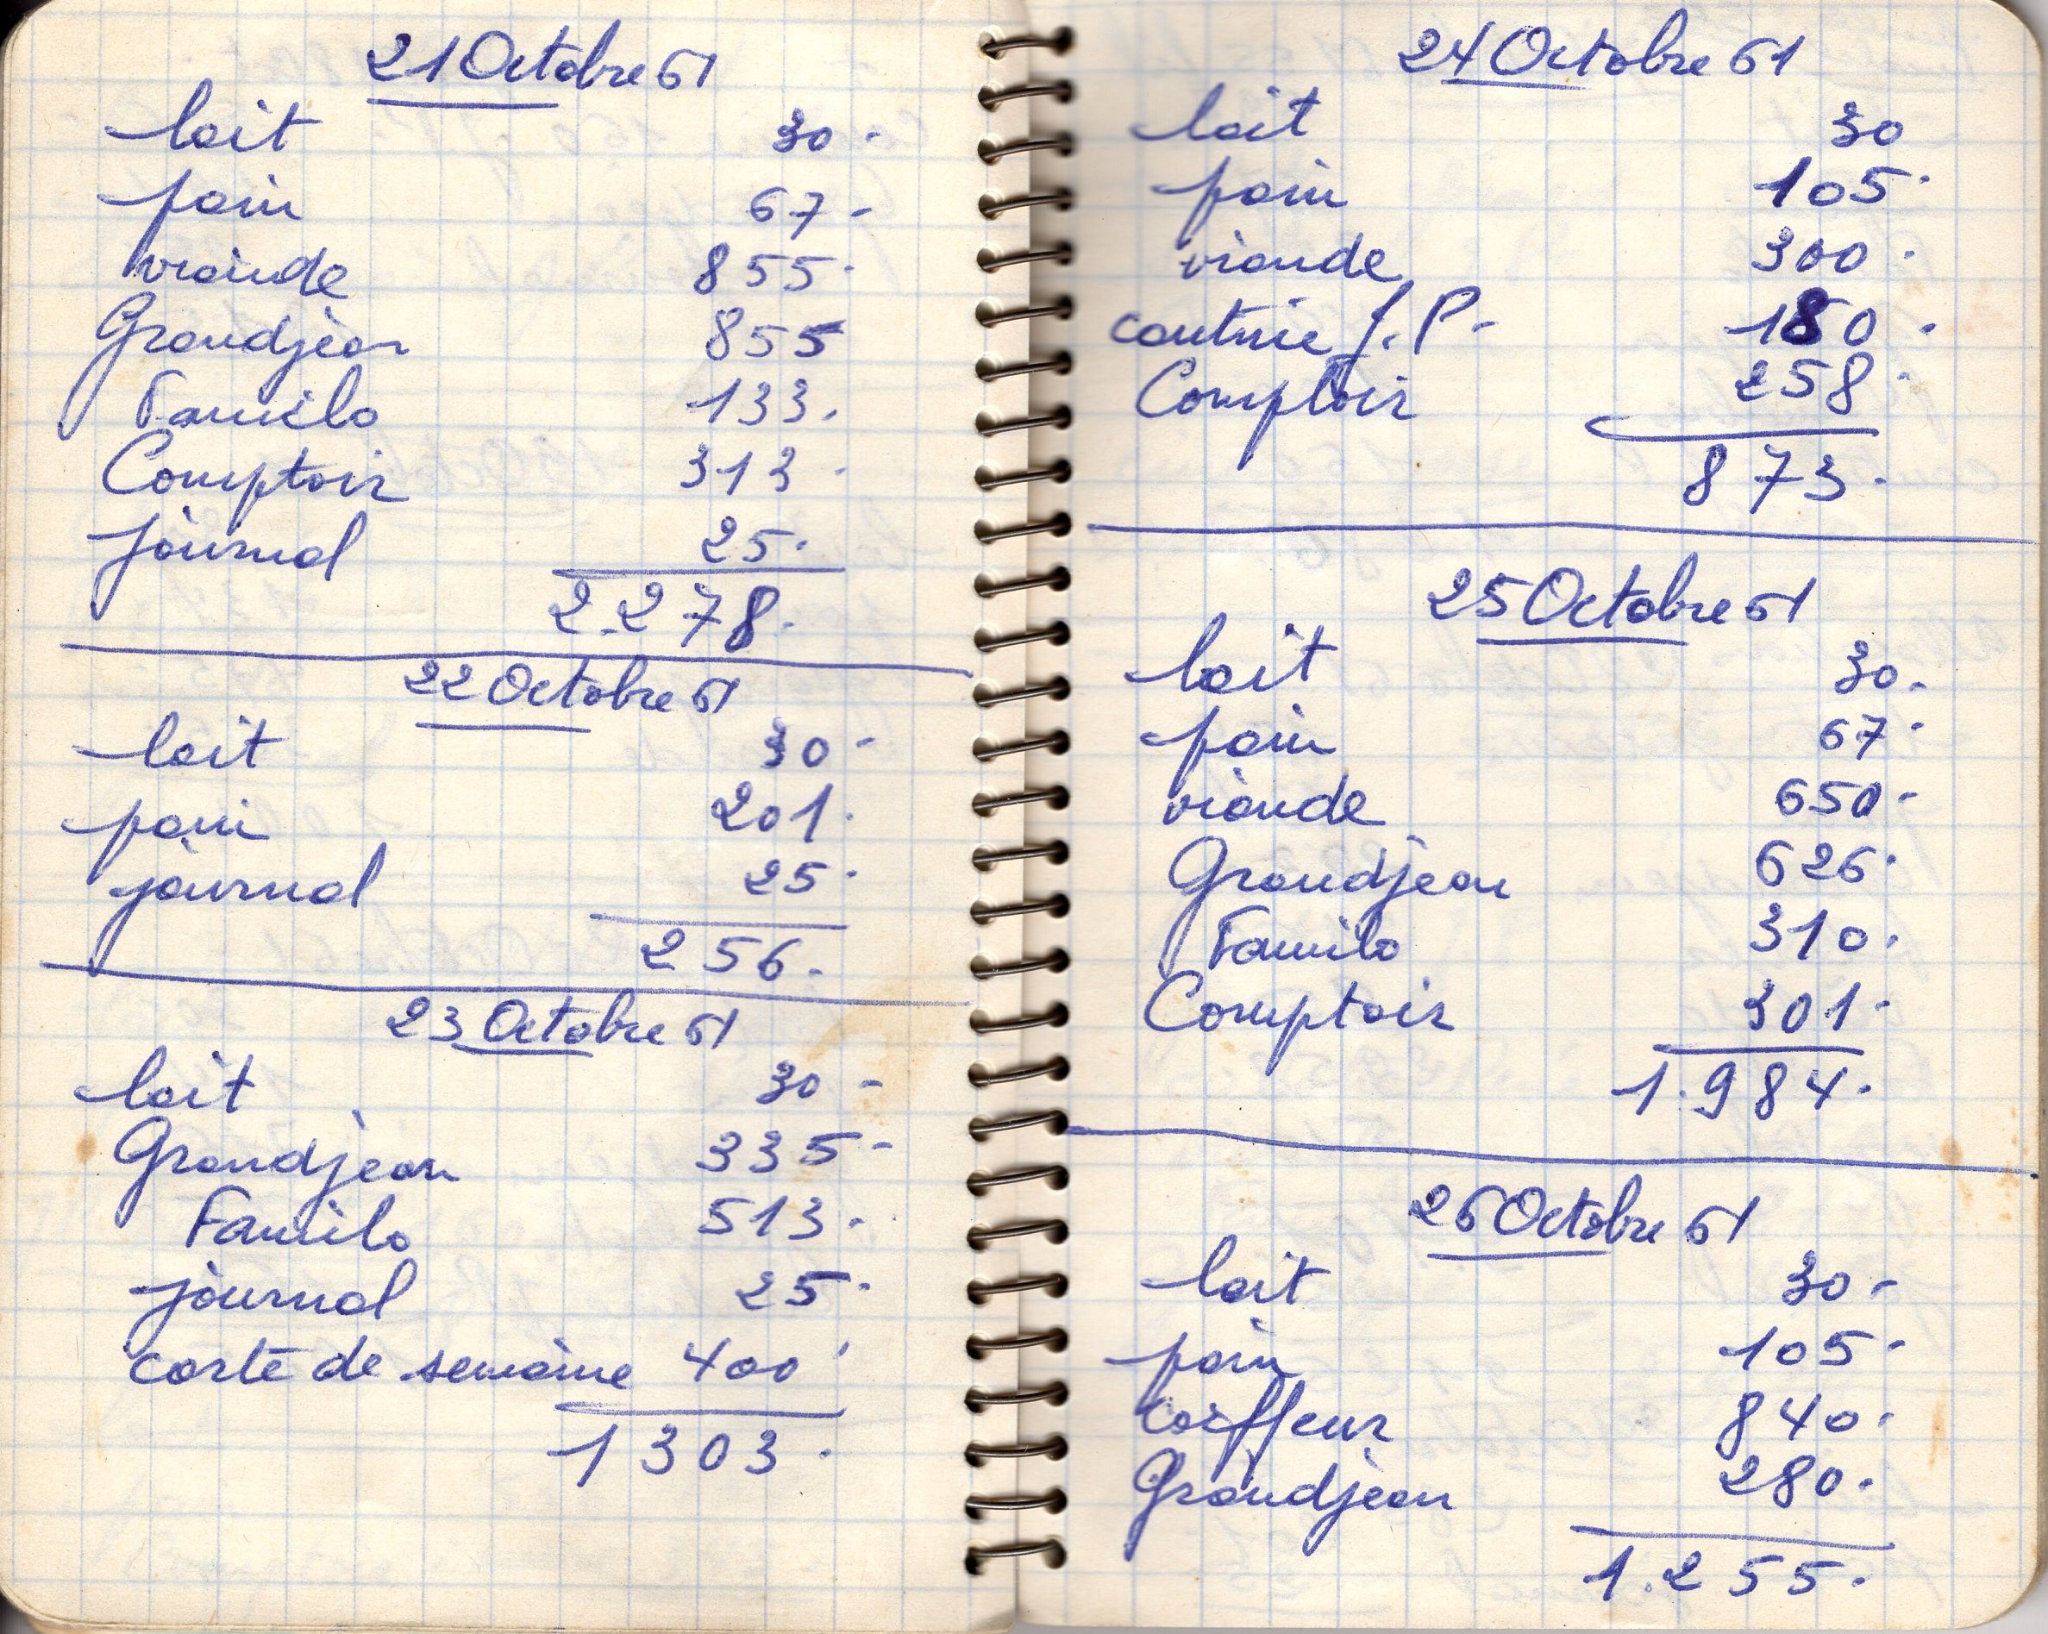 21 Octobre 61
lait 30.
pain 67.
viande 855.
Grandjean 855
Familo 133.
Comptoir 313.
journal 25.
2.278.
22 Octobre 61
lait 30.
pain 201.
journal 25.
256.
23 Octobre 61
lait 30.
Grandjean 335.
Familo 513.
journal 25.
carte de semaine 400
1303.
24 Octobre 61
lait 30
pain 105.
viande 300.
J.P. 180.
Comptoir 258.
873.
25 Octobre 61
lait 30.
pain 67.
viande 650.
Grandjean 626.
Familo 310.
Comptoir 301.
1.984.
26 Octobre 61
lait 30.
pain 105.
coiffeur 840.
Grandjean 280.
1.255.